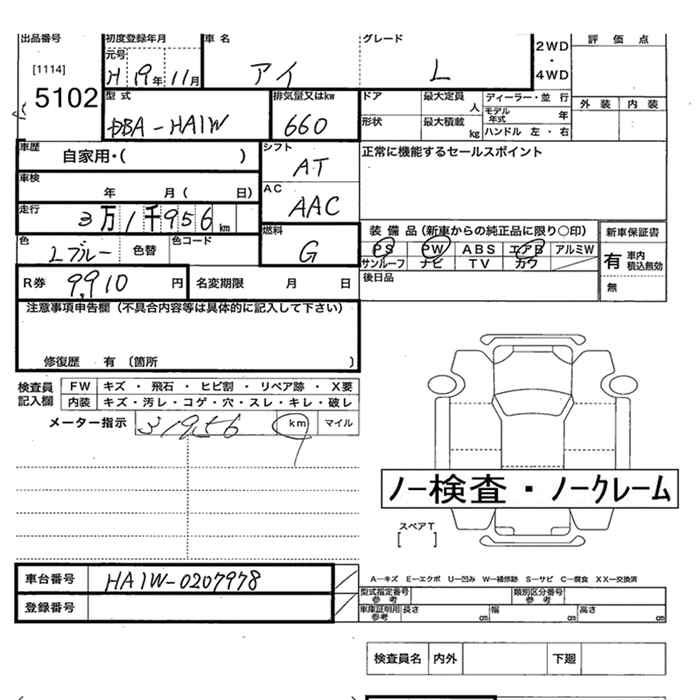 出品番号 初度登録年月 車名 グレード 2WD・4WD 評価点
[1114] 元号
5102 H 19年 11月 アイ L
外装 内装
型式 排気量又はkw ドア 最大定員 人 ディーラー・並行
DBA-HA1W 660 形状 最大積載 kg モデル年式 年
ハンドル 左・右
車歴 自家用・( ) シフト AT 正常に機能するセールスポイント
車検 年 月( 日) AC AAC
走行 3万1千956km 装備品(新車からの純正品に限り○印) 新車保証書
色 Lブルー 色替 色コード 燃料 G PS PW ABS エアB アルミW 有 車内 積込無効
サンルーフ ナビ TV カワ
R券 9,910円 名変期限 月 日 後日品 無
注意事項申告欄(不具合内容等は具体的に記入して下さい)
修復歴 有 (箇所 )
検査員記入欄 FW キズ・飛石・ヒビ割・リペア跡・X要
内装 キズ・汚レ・コゲ・穴・スレ・キレ・破レ
メーター指示 31956 km マイル
ノー検査・ノークレーム
スペアT
[ ]
車台番号 HA1W-0207978 A―キズ E―エクボ U―凹み W―補修跡 S―サビ C―腐食 XX―交換済
型式指定番号 参考 類別区分番号 参考
登録番号 車庫証明用 参考 長さ cm 幅 cm 高さ cm
検査員名 内外 下廻